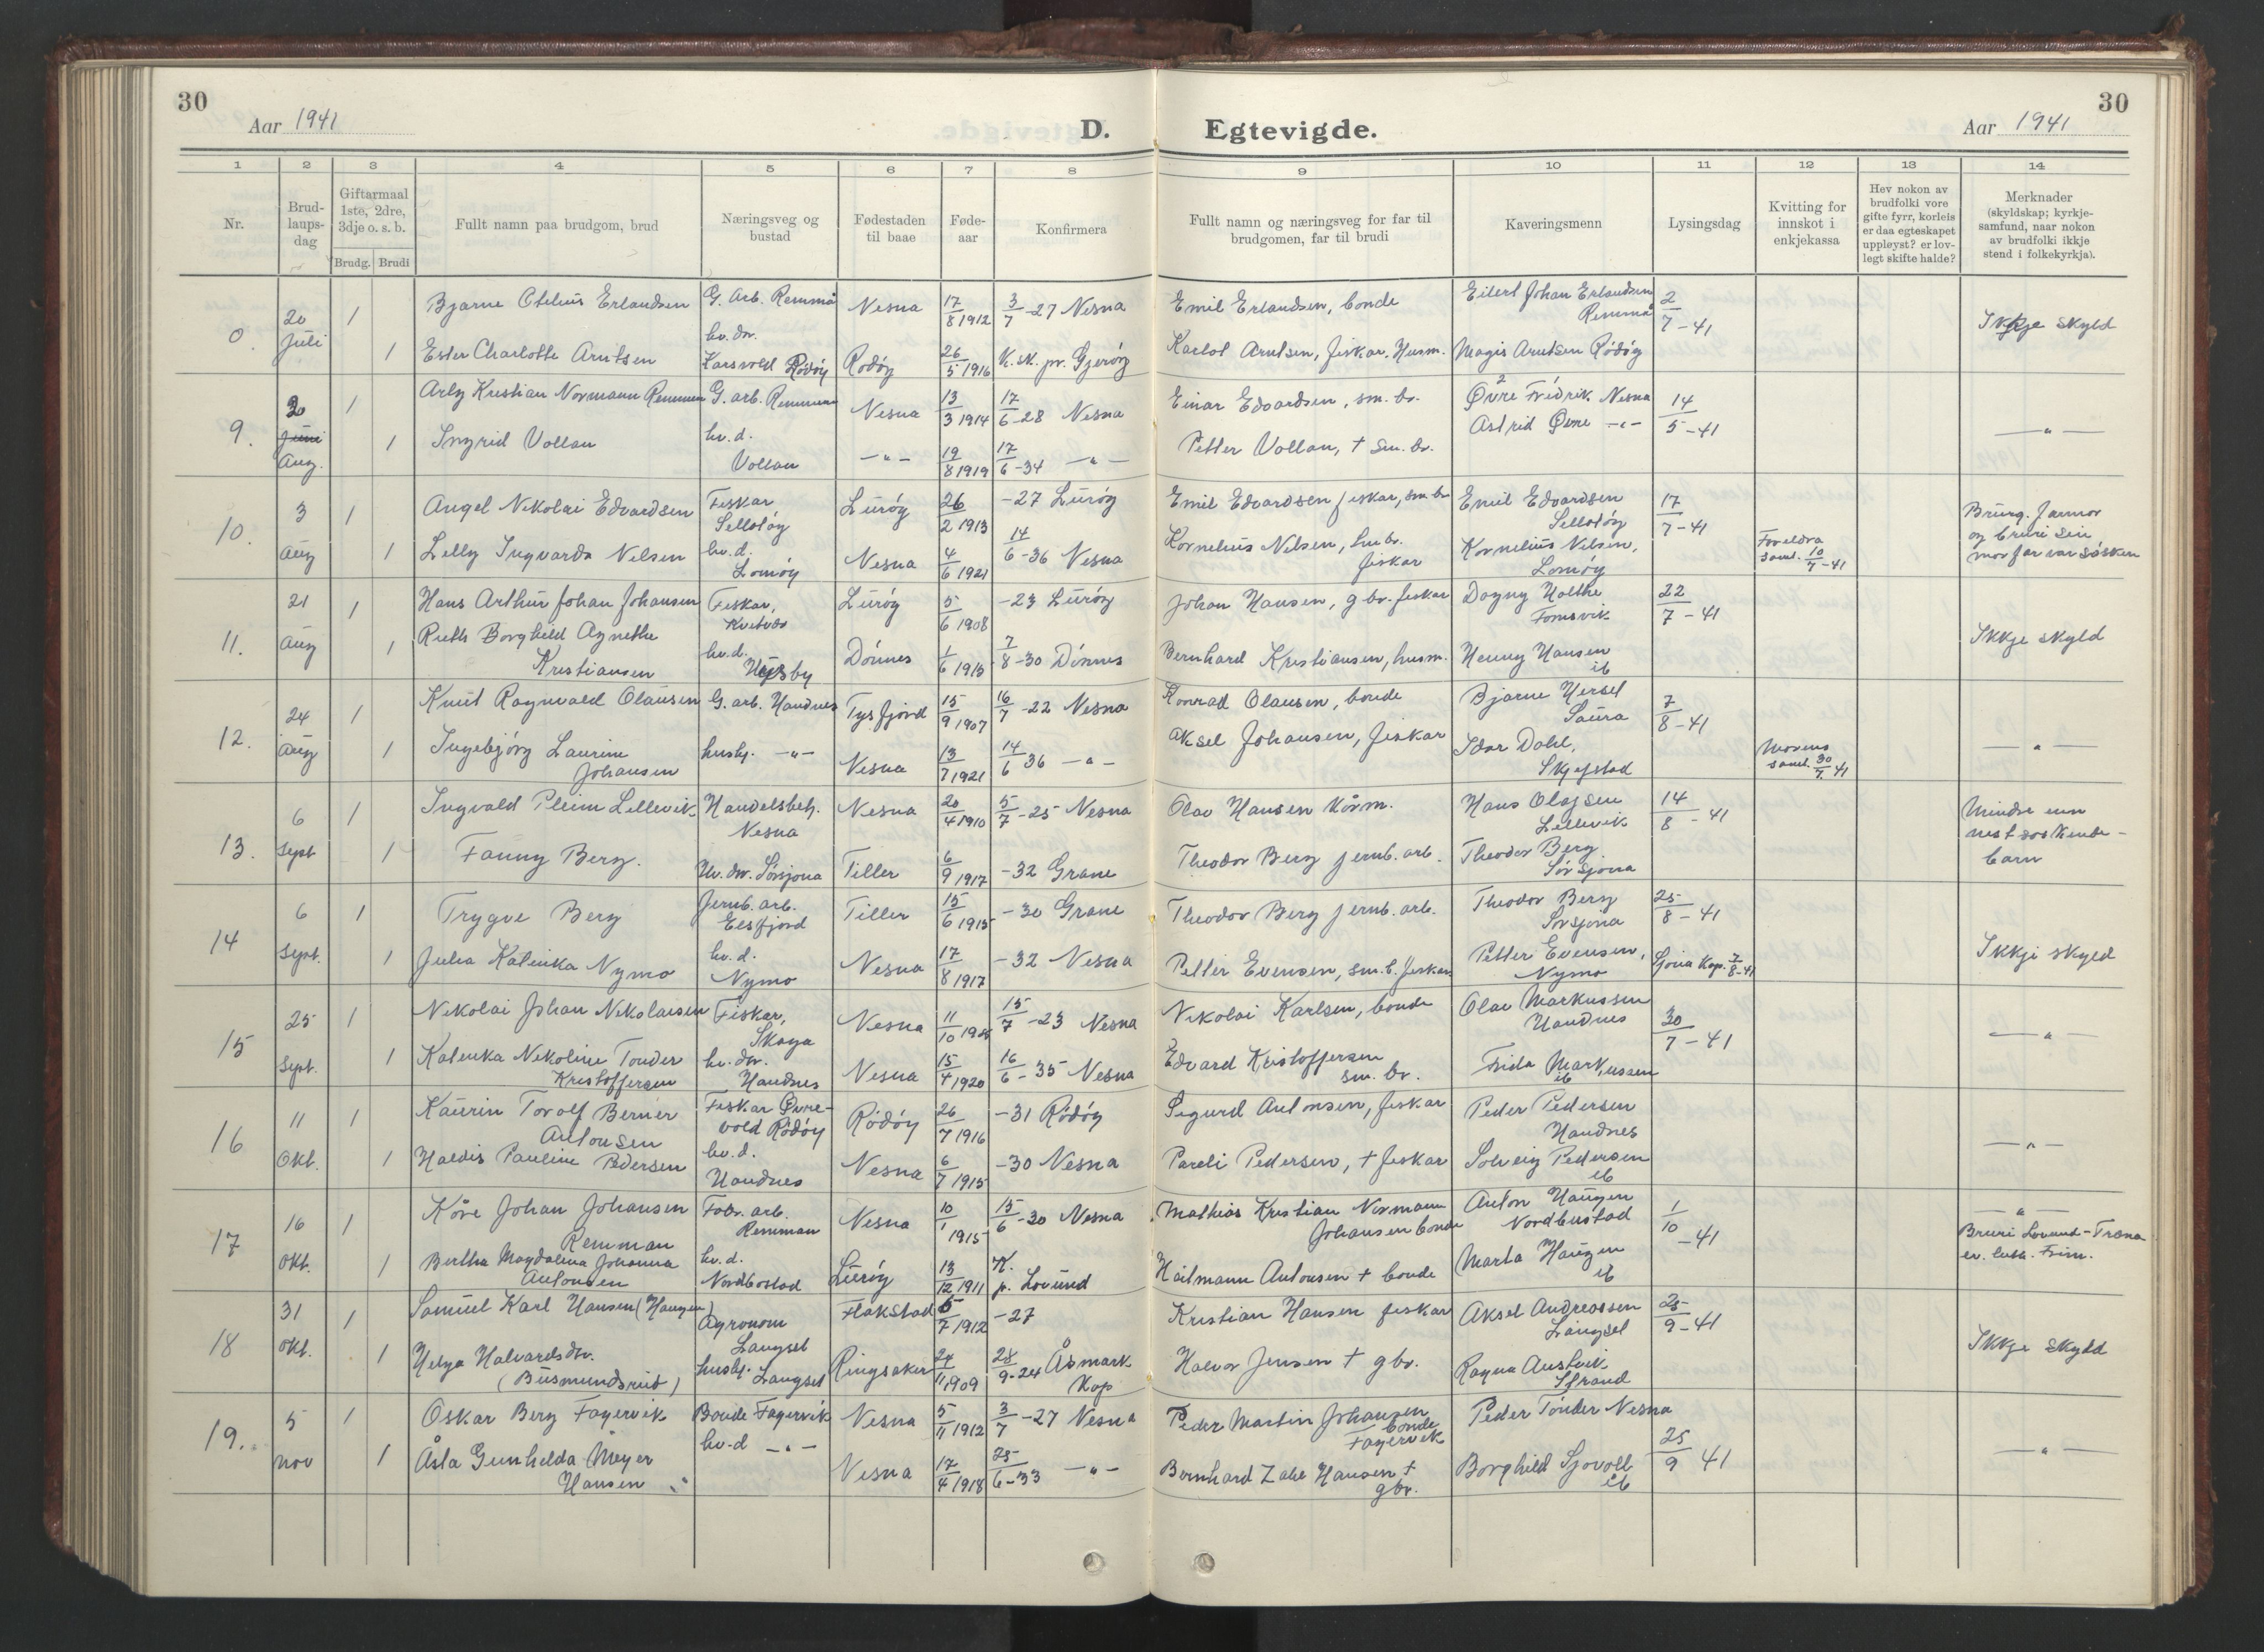 30
30
Aar 1941
D.
Egtevigde.
Aar 1941
1 2 3 4 5 6 7 8 9 10 11 12 13 14
Nr.
Brud-
laups-
dag
Giftarmaal
1ste, 2dre,
3dje o. s. b.
Brudg. Brudi
Fullt namn paa brudgom, brud
Næringsveg og
bustad
Fødestaden
til baae
Føde-
aar
Konfirmera
Fullt namn og næringsveg for far til
brudgomen, far til brudi
Kaveringsmenn
Lysingsdag
Kvitting for
innskot i
enkjekassa
Hev nokon av
brudfolki vore
gifte fyrr, korleis
er daa egteskapet
uppløyst? er lov-
legt skifte halde?
Merknader
(skyldskap; kyrkje-
samfund, naar nokon
av brudfolki ikkje
stend i folkekyrkja).
20 Juli 1 Bjarne Otelius Erlandsen G. Arb. Remmå Nesna 17/8 1912 3/7 -27 Nesna Emil Erlandsen, bonde Eilert Johan Erlandsen Remmå 2/7 -41 Ikkje skyld
1 Ester Charlotte Arntsen hv. dr. Rödöy Rödöy 26/5 1916 K. sk. pr. Gjeröy Karlot Arntsen, fiskar, Husm. Magis Arntsen Rödöy
9. Aug. 1 Arly Kristian Normann Remmen G. arb. Remmen Nesna 13/3 1914 17/6 -28 Nesna Einar Edvardsen, sm. br. Øvre Fridrik Nesna 14/5 -41 — " —
1 Ingrid Vollan hv. d. Vollan — " — 19/8 1919 17/6 -34 — " — Petter Vollan, † sm. br. Astrid Øvre — " —
10. 3 Aug 1 Angel Nikolai Edvardsen Fiskar Selloöy Luröy 26/2 1913 -27 Luröy Emil Edvardsen fiskar, sm. br Emil Edvardsen 17/7 -41 Brurg. farmor
og bruri sin
morfar var søsken
1 Lelly Ingvarda Nilsen hv. d. Lomöy Nesna 4/6 1921 14/6 -36 Nesna Kornelius Nilsen, fiskar Kornelius Nilsen, Lomöy Foreldra saml. 10/7 -41
11. 21 Aug 1 Hans Arthur Johan Johansen Fiskar, Luröy 5/6 1908 -23 Luröy Johan Hansen, g br. fiskar Dagny Holthe 22/7 -41 Ikkje skyld
1 Ruth Borghild Agnethe Kristiansen hv. d. Dönnes 1/6 1915 7/8 -30 Dönnes Bernhard Kristiansen, husm. Henny Hansen ib
12. 24 Aug 1 Knut Ragnvald Olausen G. arb. Handnes Tysfjord 15/9 1907 16/7 -22 Nesna Konrad Olausen, bonde Bjarne Hersel Saura 7/8 -41 — " —
1 Ingebjörg Laurine Johansen hushj. — " — Nesna 13/7 1921 14/6 36 — " — Aksel Johansen, fiskar Idar Dahl, Skjefstad Morens saml. 30/7 41
13. 6 Sept 1 Ingvald Pleim Lillevik Handelsbetj. Nesna Nesna 20/4 1910 5/7 -25 Nesna Olav Hansen Hans Olafsen Lillevik 14/8 -41 Mindre enn
nest søskende-
barn
1 Fanny Berg. Hv. dr. Sörsjona Tiller 6/9 1917 -32 Grane Theodor Berg jernb. arb. Theodor Berg Sörsjona
14 6 Sept. 1 Trygve Berg Jernb. arb. Elsfjord Tiller 15/6 1915 -30 Grane Theodor Berg jernb. arb. Theodor Berg Sörsjona 25/8 -41 Ikkji skyld
1 Julia Katinka Nymo hv. d. Nymo Nesna 17/8 1917 -32 Nesna Petter Evensen, sm. b. fiskar Petter Evensen, Nymo Sjona Kap. 7/8 -41
15 25 Sept. 1 Nikolai Johan Nikolaisen Fiskar, Nesna 15/7 -23 Nesna Nikolai Karlsen, bonde Olav Markussen Handnes 30/7 -41 — " —
1 Katinka Nikoline Tonder Kristoffersen hv. dr. Handnes Nesna 15/4 1920 16/6 -35 Nesna Edvard Kristoffersen sm. br. Frida Markussen ib
16 11 Okt. 1 Kaurin Torolf Berner Antonsen Fiskar Øvre-
vold Rödöy Rödöy 26/7 1916 -31 Rödöy Sigurd Antonsen, fiskar Peder Pedersen Handnes — " —
1 Haldis Pauline Pedersen hv. d. Handnes Nesna 6/7 1915 -30 Nesna Pareli Pedersen, † fiskar Solveig Pedersen ib
17 16 Okt. 1 Kåre Johan Johansen Remman Fabr. arb. Remman Nesna 10/1 1915 15/6 -30 Nesna Mathias Kristian Normann Johansen bonde Anton Haugen Nordbustad 1/10 -41 — " —
1 Bertha Magdalena Johanna Antonsen hv. d. Nordbostad Luröy 13/12 1911 K. p. Lovund Hailmann Antonsen † bonde Marta Haugen ib Bruri Lovund-Træna
ev. luth. Frim.
18 31 Okt. 1 Samuel Karl Hansen (Haugen) Agronom Langset Flakstad 6/7 1912 -27 Kristian Hansen fiskar Aksel Andreassen Langset 25/9 -41 Ikkje skyld
1 Helga Halvardsdtr. (Busmundsrud) hushj. Langset Ringsaker 24/11 1909 28/9 -24 Åsmark Kap Halvor Jensen † g br. Ragna Austvik Strand
19. 5 nov 1 Oskar Berg Fagervik Bonde Fagervik Nesna 5/11 1912 3/7 -27 Nesna Peder Martin Johansen bonde Fagervik Peder Tönder Nesna 25/9 41 — " —
1 Åsta Gunhilda Meyer Hansen hv. d — " — Nesna 17/4 1918 25/6 -33 — " — Bernhard Zahl Hansen † g br. Borghild Sjovoll ib